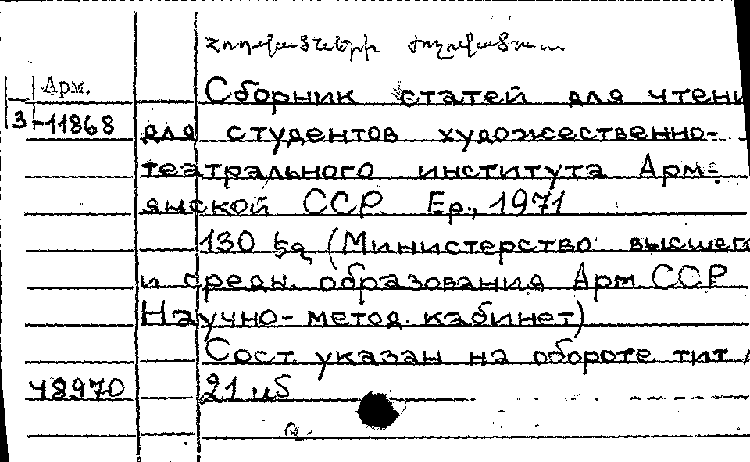 Հոդվածների ժողովածու
Арм.
Сборник статей для чтени
3-11868
для студентов художественно-
театрального института Арм=
янской ССР. Ер., 1971
130 էջ (Министерство высшего
и средн. образования Арм.ССР
Научно-метод. кабинет)
Сост. указан на обороте тит л
48970
21 սմ